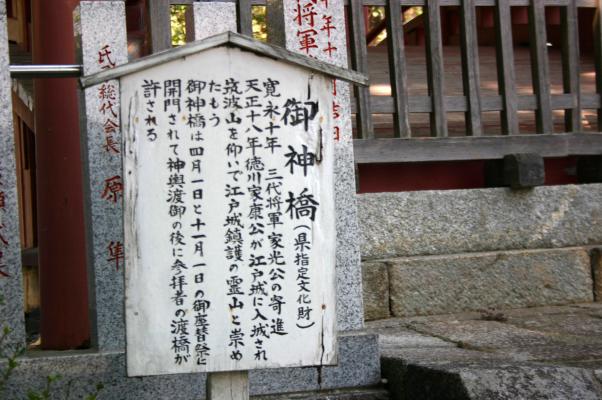 御神橋(県指定文化財)
寛永十年　三代将軍家光公の寄進
天正十八年徳川家康公が江戸城に入城され
筑波山を仰いで江戸城鎮護の霊山と崇め
たもう
御神橋は四月一日と十一月一日の御座替祭に
開門されて神輿渡御の後に参拝者の渡橋が
許される
氏子総代会長　原　隼